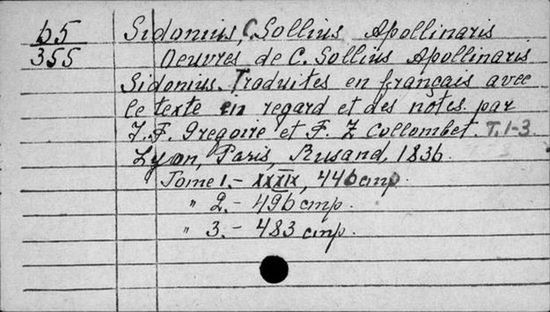 65
355
Sidonius, C. Sollius Apollinaris
Oeuvres de C. Sollius Apollinaris
Sidonius. Traduites en français avec
le texte en regard et des notes par
J. F. Gregoire et F. Z Collombet. T. 1-3
Lyon, Paris, Rusand, 1836.
Tome 1. - XXXIX, 446 cmp.
" 2. - 496 cmp.
" 3. - 483 cmp.